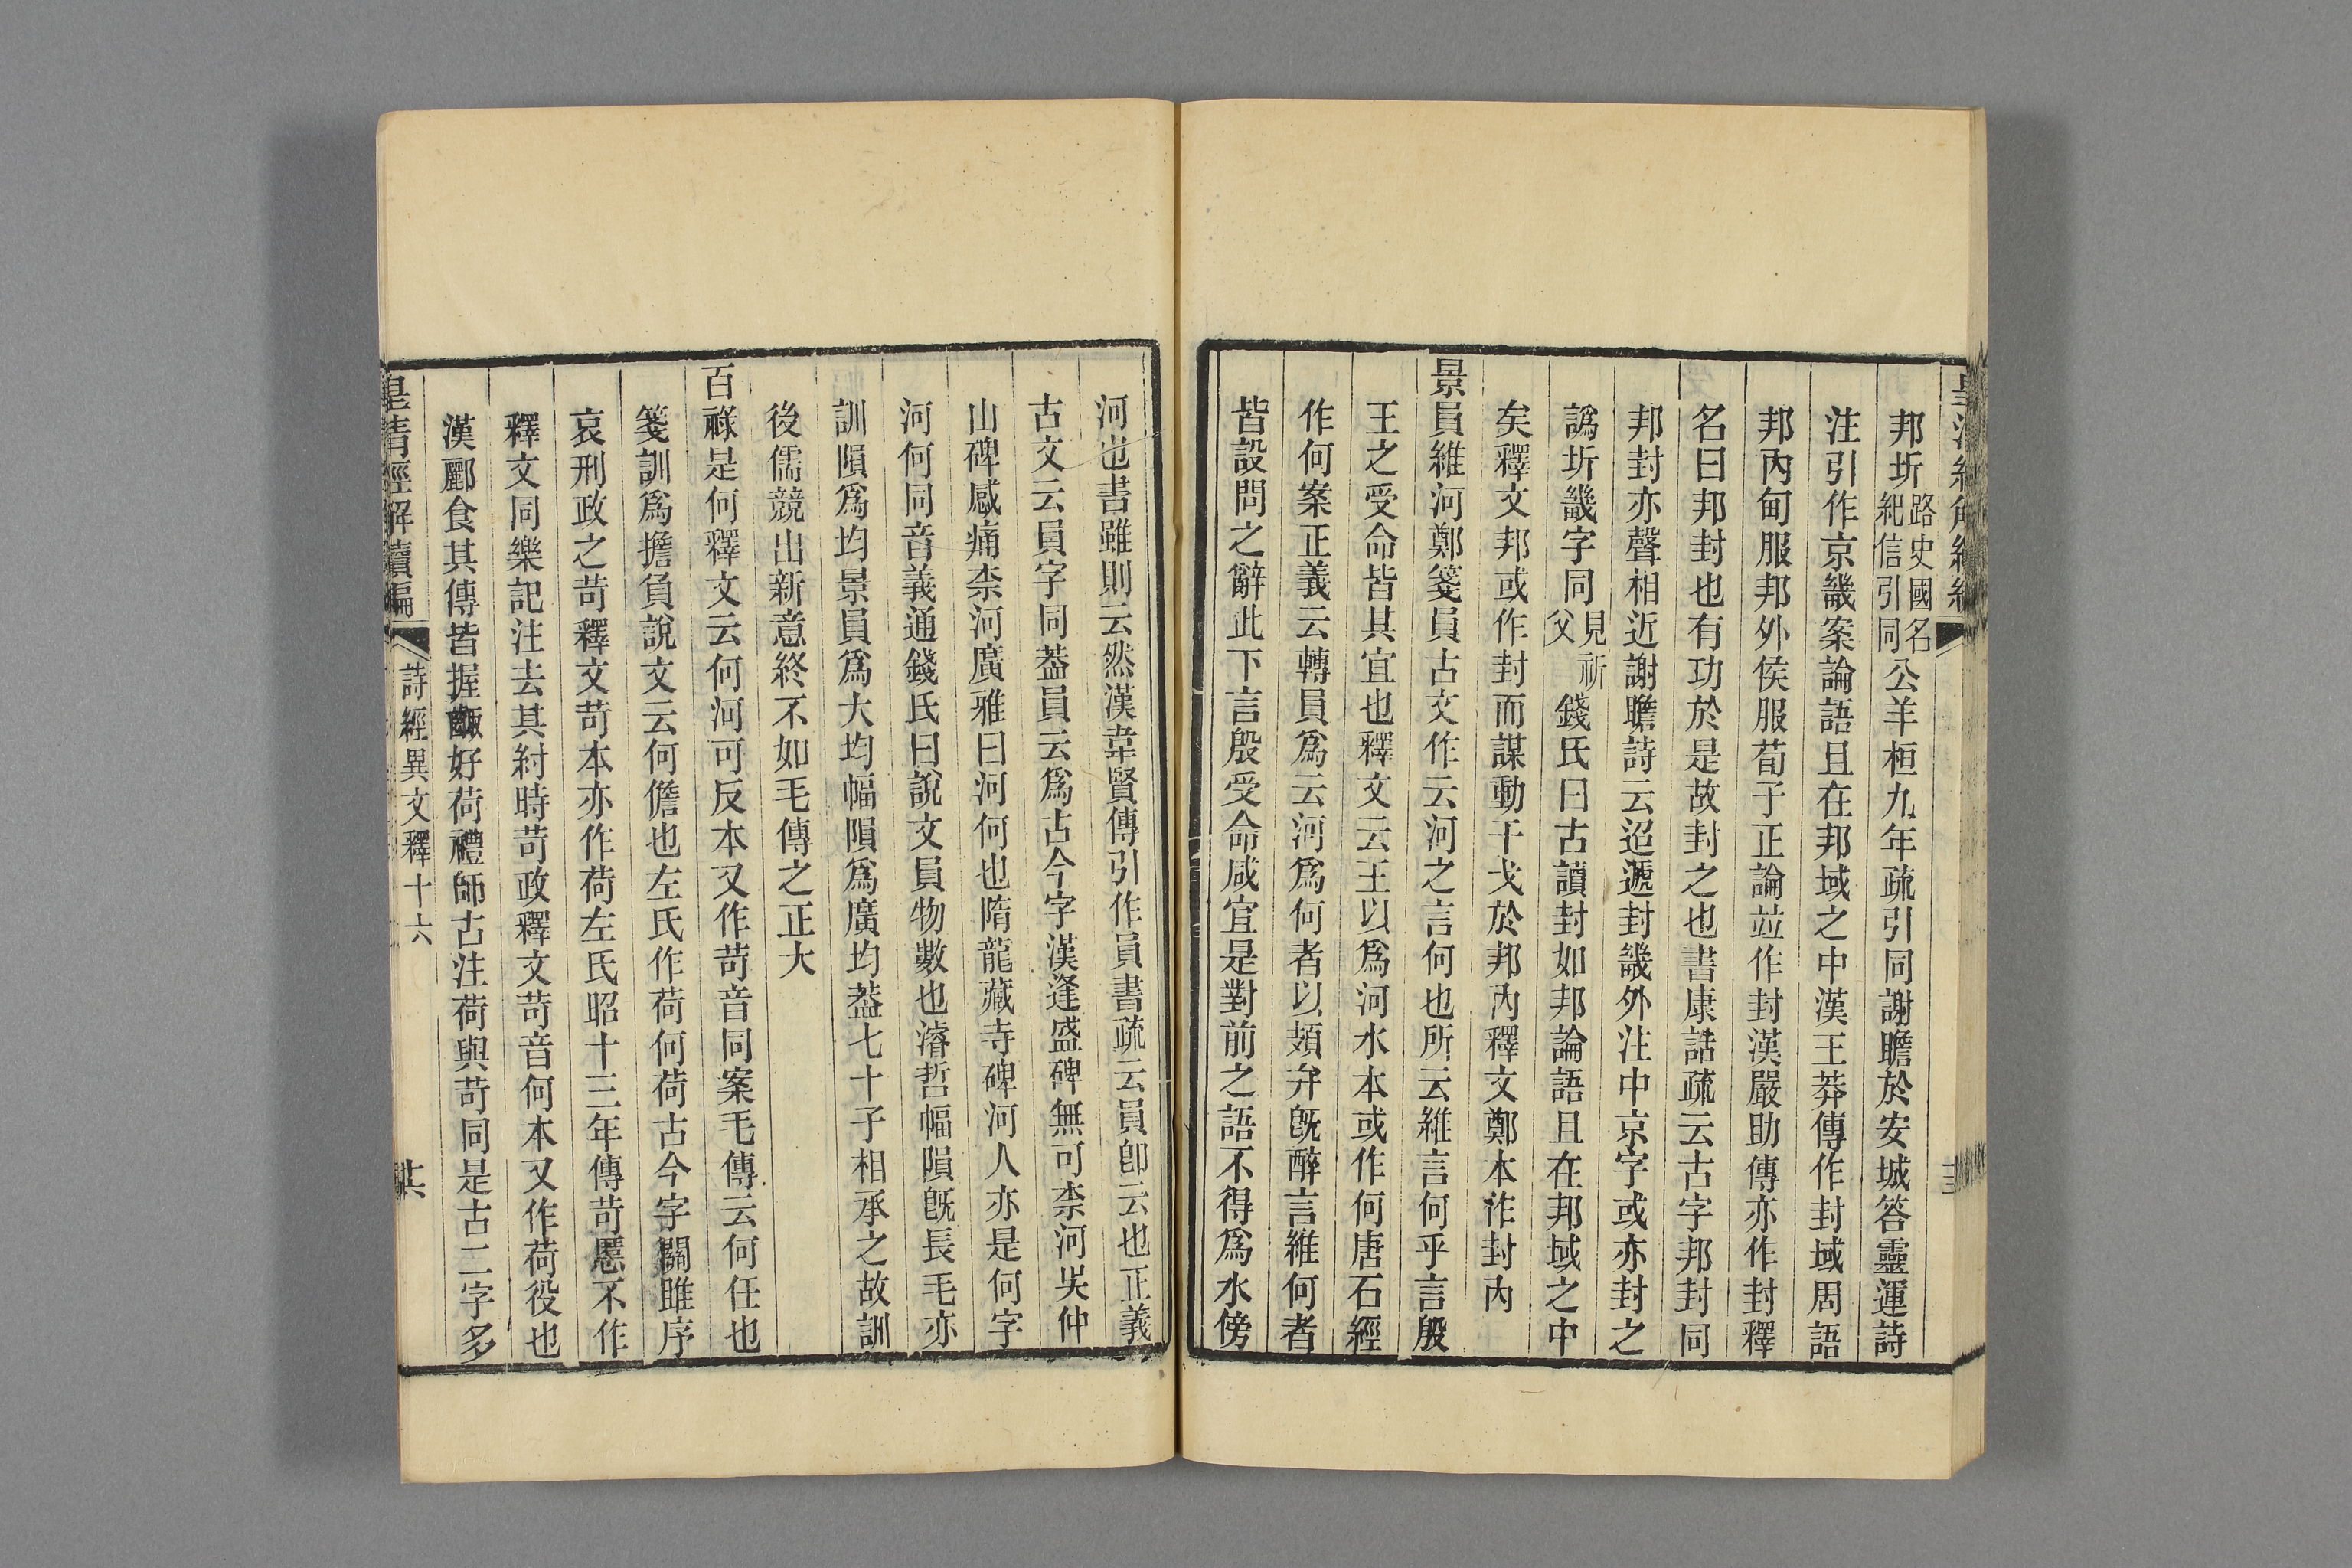 邦圻路史國名紀信引同公羊桓九年疏引同謝瞻於安城答靈運詩
注引作京畿案論語且在邦域之中漢王莽傳作封域周語
邦內甸服邦外侯服荀子正論竝作封漢嚴助傳亦作封釋
名曰邦封也有功於是故封之也書康誥疏云古字邦封同
邦封亦聲相近謝瞻詩云迢遞封畿外注中京字或亦封之
譌圻畿字同見祈父錢氏曰古讀封如邦論語且在邦域之中
矣釋文邦或作封而謀動干戈於邦內釋文鄭本作封內
景員維河鄭箋員古文作云河之言何也所云維言何乎言殷
王之受命皆其宜也釋文云王以為河水本或作何唐石經
作何案正義云轉員爲云河爲何者以頍弁旣醉言維何者
皆設問之辭此下言殷受命咸宜是對前之語不得爲水傍
河也書雖則云然漢韋賢傳引作員書疏云員卽云也正義
古文云員字同葢員云爲古今字漢逢盛碑無可柰河吳仲
山碑感痛柰河廣雅曰河何也隋龍藏寺碑河人亦是何字
河何同音義通錢氏曰說文員物數也濬哲幅隕旣長毛亦
訓隕爲均景員爲大均幅隕爲廣均葢七十子相承之故訓
後儒競出新意終不如毛傳之正大
百祿是何釋文云何河可反本又作苛音同案毛傳云何任也
箋訓爲擔負說文云何儋也左氏作荷何荷古今字關雎序
哀刑政之苛釋文苛本亦作荷左氏昭十三年傳苛慝不作
釋文同樂記注去其紂時苛政釋文苛音何本又作荷役也
漢酈食其傳皆握齱好荷禮師古注荷與苛同是古二字多
皇清經解續編
詩經異文釋十六